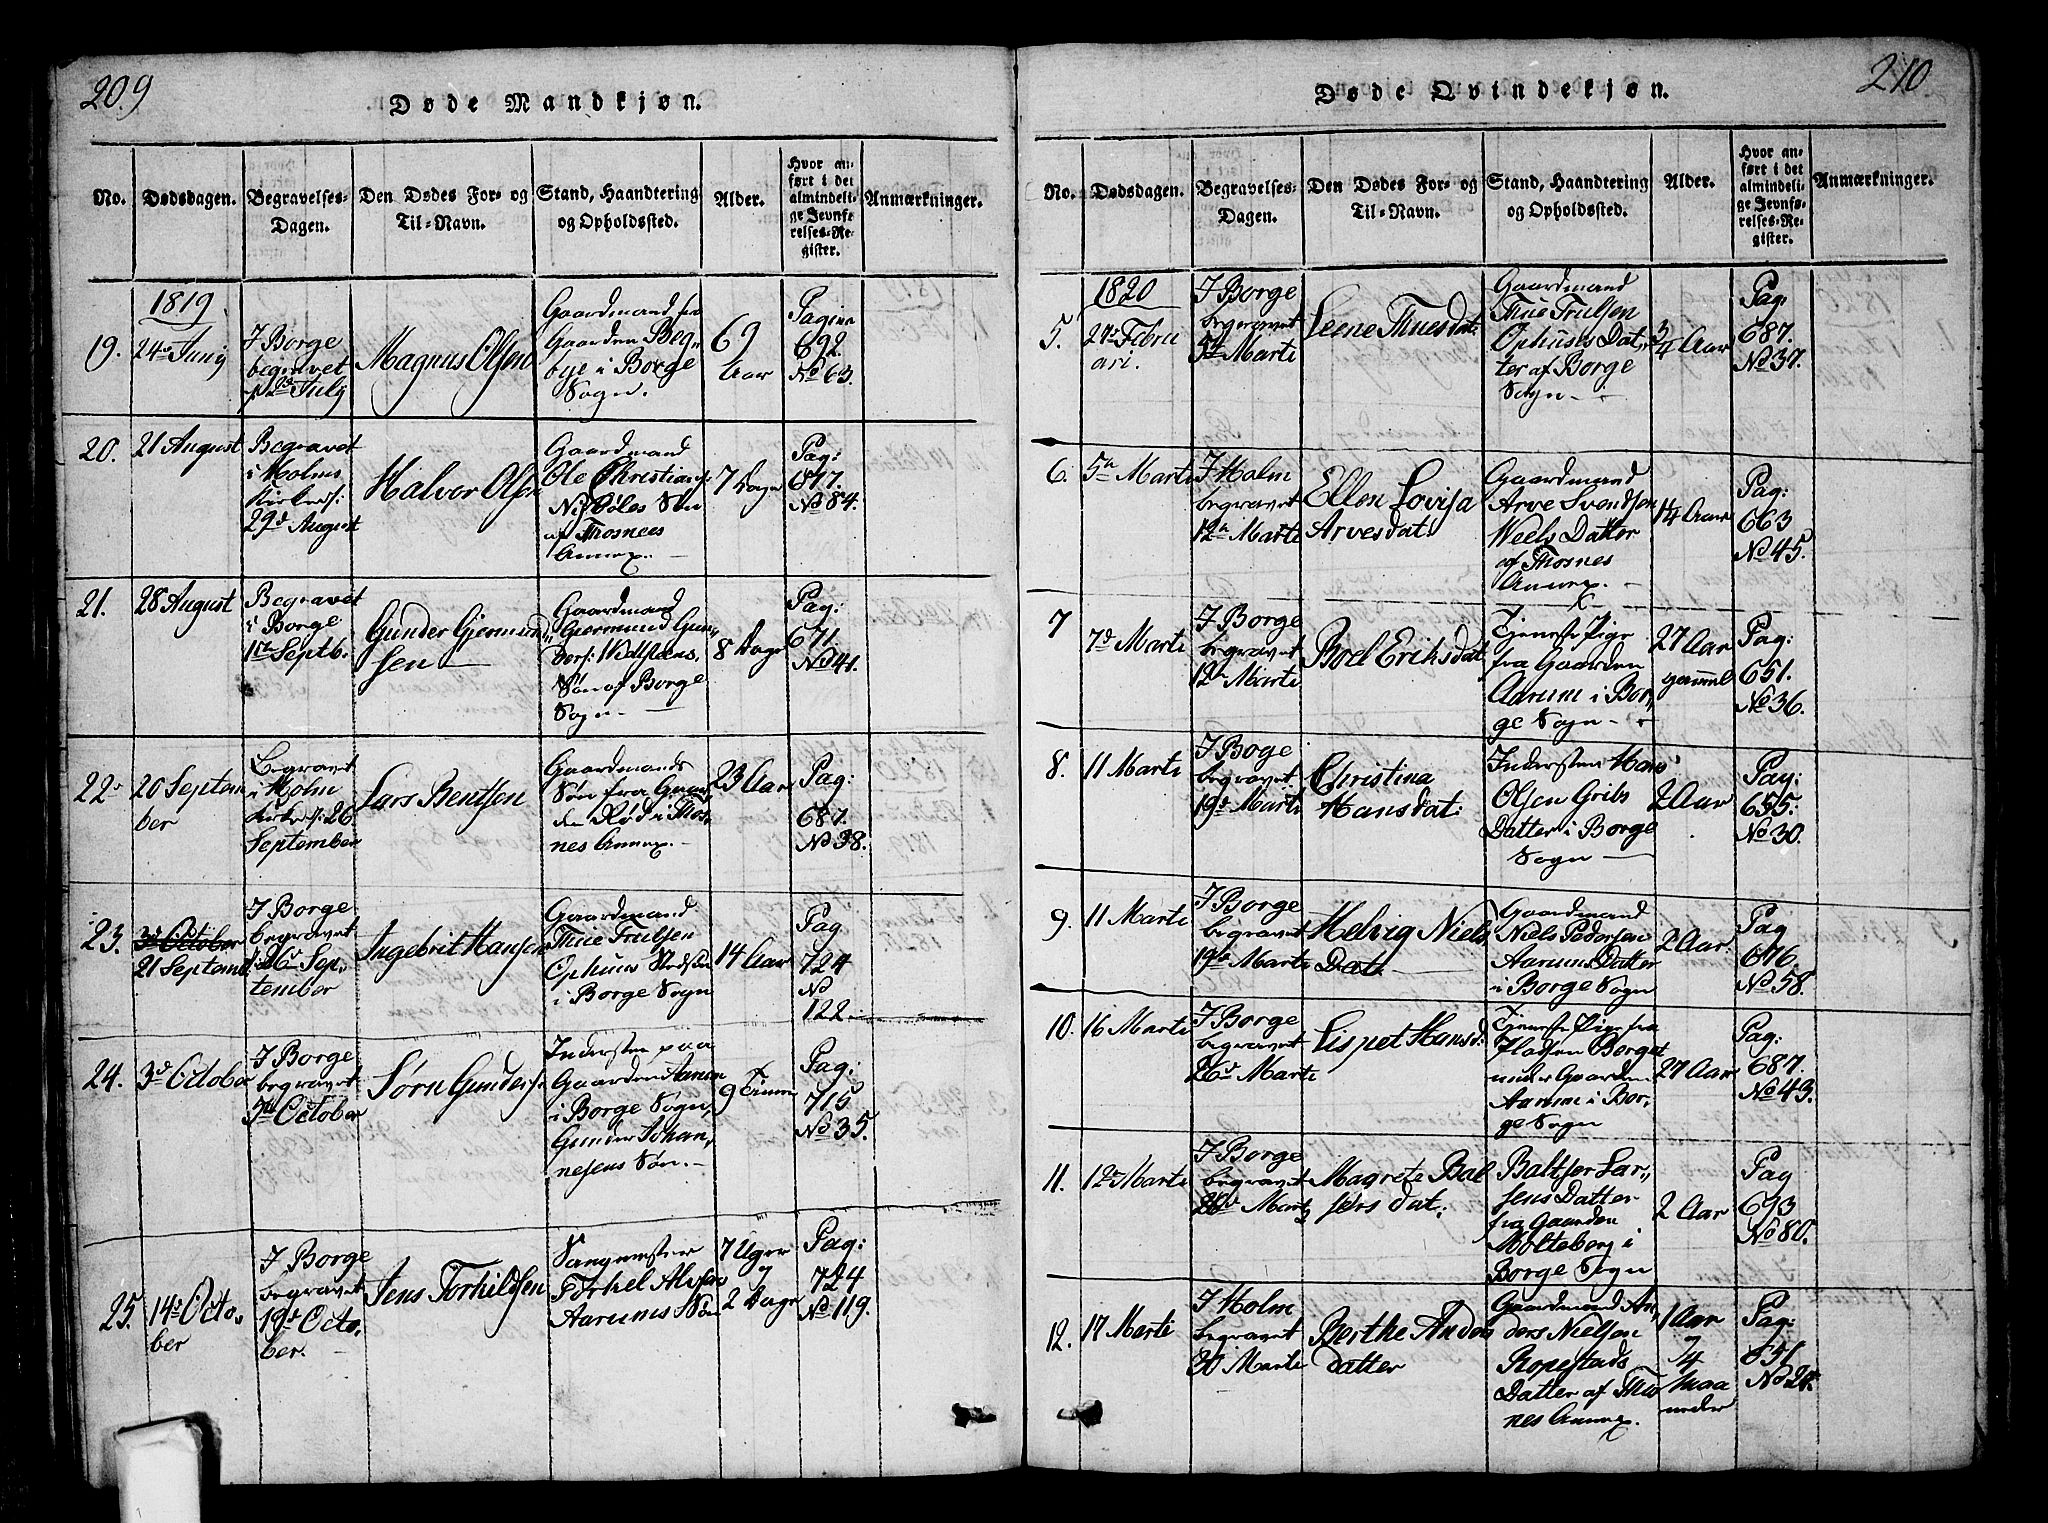 209
Døde Mandkjøn.
No.
Dødsdagen.
Begravelses-
Dagen.
Den Dødes For- og
Til-Navn.
Stand, Haandtering
og Opholdssted.
Alder.
Hvor an-
ført i det
almindeli-
ge Jevnfø-
relses-Re-
gister.
Anmærkninger.
1819
19.
24de Junij
I Borge
begravet
2de Julij
Magnus Olsen
Gaardmand fra
Gaarden Beg,
bye i Borge
Sogn.
69
Aar
Pagina
692.
No 63.
20.
21 August
Begravet
i Holms
Kirke
29d August
Halvor Olsen
Gaardmand
Ole Christians:
Søn
af Thosnees
Annex.
7 Dage
Pag:
No 84.
21.
28 August
Begravet
i Borge
Septb.
Gunder Gjermund
sen
Gaardmand
Gjermund Gun,
ders:
Søn af Borge
Sogn
8 Dage
Pag:
671.
No 41.
22
20 Septem
ber
Begravet
i Holm
Kirke 26
September
Lars Bentsen
Gaardmands
Søn fra Gaar,
den Rød i Thos,
nes Annex.
23 Aar
Pag:
687.
No 38.
23.
3d October
21 Septemb
I Borge
begravet
26d Sep,
tember
Ingebrit Hansen
Gaardmand
Thue Trulsen
Ophuus
i Borge Sogn
14 Aar
Pag
724
No
122
24.
3d October
I Borge
begravet
October
Sørn Gunders
Indersten paa
Gaarden Aarum
i Borge Sogn,
Gunder Johan,
nesens Søn.
9 Timer
Pag:
715
No 35.
25.
14d Octo,
ber
I Borge
begravet
19d Octo,
ber.
Jens Torkildsen
Torkel
Aarums Søn
7 Uger
og
2 Dage
Pag:
724
No 119.
210
Døde Qvindekjøn.
No.
Dødsdagen.
Begravelses-
Dagen.
Den Dødes For- og
Til-Navn.
Stand, Haandtering
og Opholdssted.
Alder.
Hvor an-
ført i det
almindeli-
ge Jevnfø-
relses-Re-
gister.
Anmærkninger.
1820
5.
Febru
ari.
I Borge
begravet
5te Marti
Leene Thuesdat.
Gaardmand
Thue Trulsen
Ophuus Dat,
ter af Borge
Sogn
3/4 Aar
Pag:
687.
No 37.
6.
5te Marti
I Holm
begravet
12te Marti
Ellen Lovisa
Arvesdat:
Gaardmand
Arve Svendsen
Weels Datter
af Thosnes
Annex.
14 Aar
Pag:
663
No 45.
7
7d Marti
I Borge
begravet
12 Marti
Boel Eriksdat
Tjeneste Pige
fra Gaarden
Aarum i Bor,
ge Sogn
27 Aar
gammel
Pag:
651.
No 36.
8.
11 Marti
I Boge
begravet
19d Marti
Christina
Hansdat:
Indersten Hans
Olsen Gribs
Datter i Borge
Sogn
2 Aar
Pag:
655.
No 30.
9.
11 Marti
I Borge
begravet
19d Marti
Helvig Niels
Dat.
Gaardmand
Niels Pedersen
Aarums Datter
i Borge Sogn
2 Aar
Pag
676.
No 58.
10.
16 Marti
I Borge
begravet
26d Marti
Lispet Hansd:
Tjeneste Pige fra
Pladsen Berget
under Gaarden
Aarum i Bor,
ge Sogn
27 Aar
Pag:
687.
No 43.
11.
12d Marti
I Borge
begravet
Marti
Magrete Bal
sers dat:
Baltser Lar,
sens Datter
fra Gaarden
Molteberg i
Borge Sogn
2 Aar
Pag
693
No 80.
12.
17 Marti
I Holm
begravet
Marti
Berthe Anders
datter
Gaardmand An,
ders Nielsen
Ropestads
Datter af Thos
nes Annex.
1 Aar
og 4
maa
neder
Pag:
651
No 24.